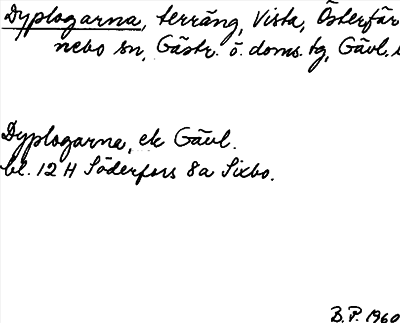 Dyplogarna, terräng, Vista, Österfär
nebo sn, Gästr. ö. doms. tg, Gävl. l
Dyplogarna, ek Gävl.
bl. 12 H Söderfors 8a Sixbo.
B.P. 1960